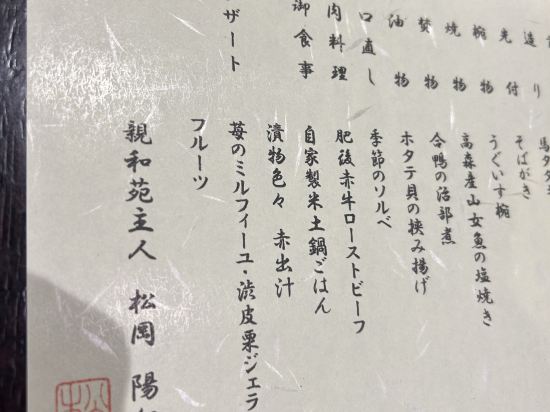 造り 馬タタ
先付 そばがき
椀物 うぐいす椀
焼物 高森産山女魚の塩焼き
焚物 合鴨の治部煮
油物 ホタテ貝の挟み揚げ
口直し 季節のソルベ
肉料理 肥後赤牛ローストビーフ
御食事 自家製米土鍋ごはん
漬物色々 赤出汁
ザート 苺のミルフィーユ・渋皮栗ジェラ
フルーツ
親和苑主人 松岡 陽